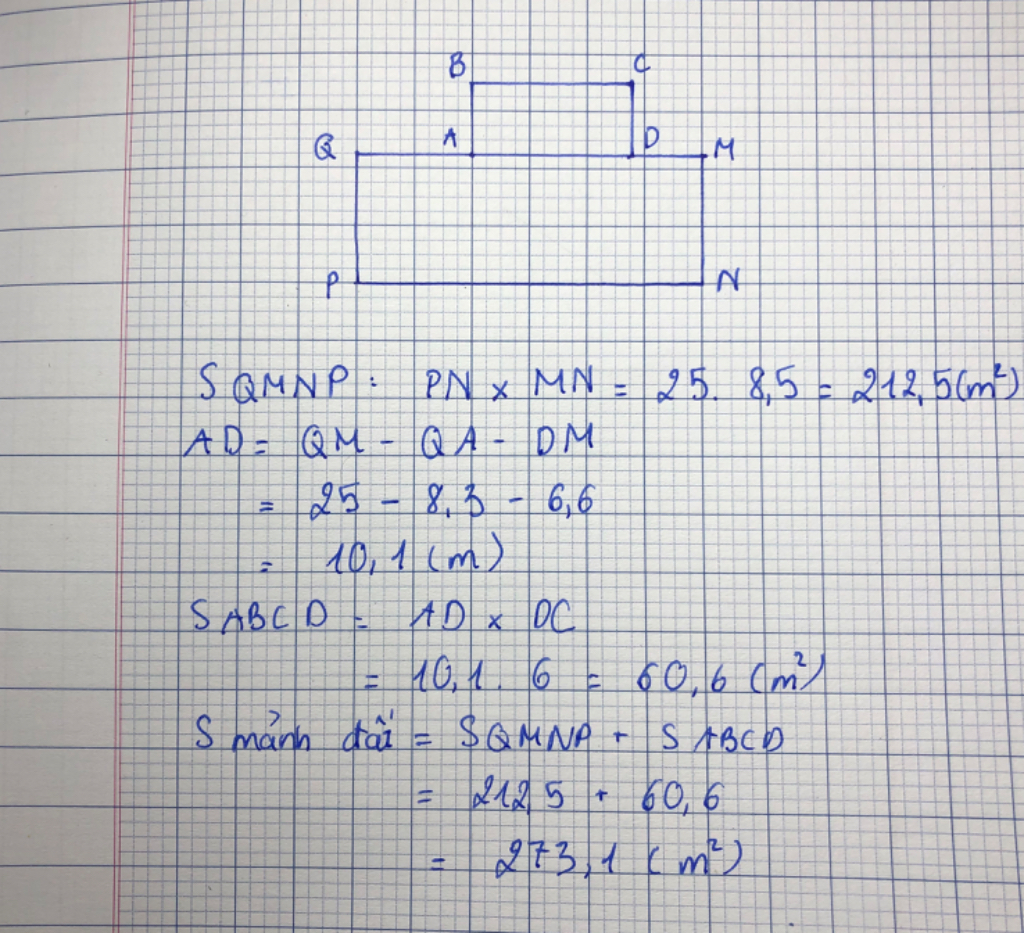 B C
Q A D M
P N
S QMNP : PN x MN = 25 . 8,5 = 212,5 (m²)
AD = QM - QA - DM
= 25 - 8,3 - 6,6
= 10,1 (m)
S ABCD = AD x DC
= 10,1 . 6 = 60,6 (m²)
S mảnh đất = SQMNP + S ABCD
= 212,5 + 60,6
= 273,1 (m²)